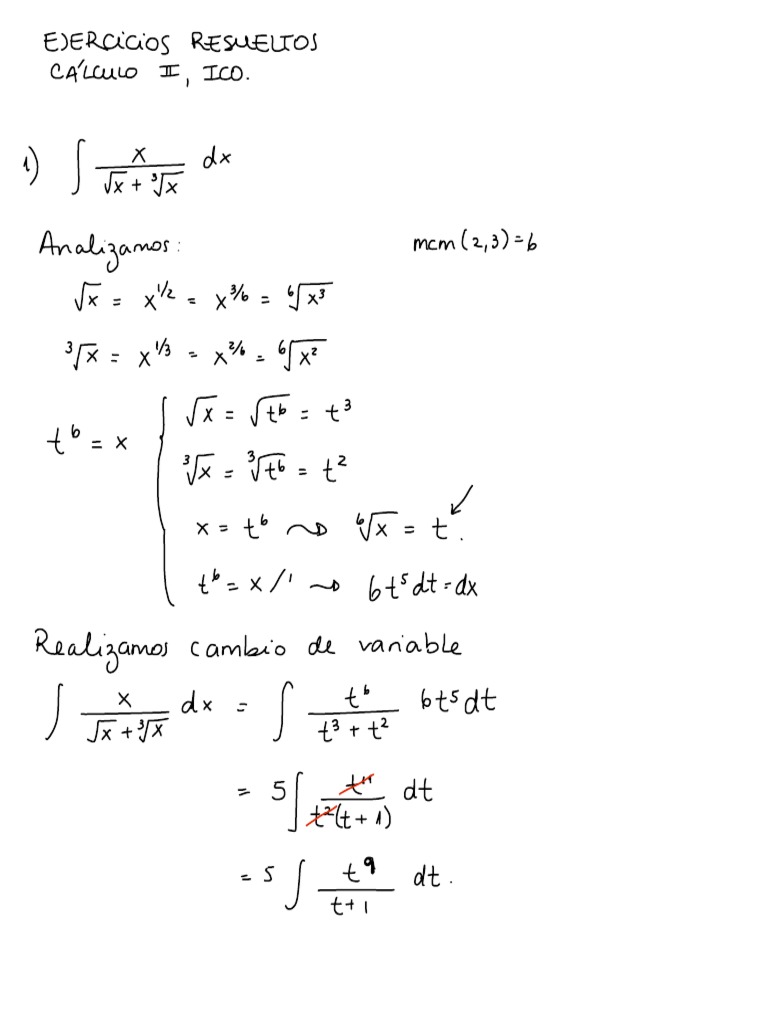 EJERCICIOS RESUELTOS
CÁLCULO II, ICO.
1) ∫ x / (√x + ³√x) dx
Analizamos: mcm(2,3)=6
√x = x^(1/2) = x^(3/6) = ⁶√(x³)
³√x = x^(1/3) = x^(2/6) = ⁶√(x²)
t⁶ = x { √x = √(t⁶) = t³
³√x = ³√(t⁶) = t²
x = t⁶ ⇝ ⁶√x = t.
t⁶ = x /' ⇝ 6t⁵dt = dx
Realizamos cambio de variable
∫ x / (√x + ³√x) dx = ∫ t⁶ / (t³ + t²) 6t⁵dt
= 5∫ t¹¹ / (t²(t + 1)) dt
= 5 ∫ t⁹ / (t+1) dt.